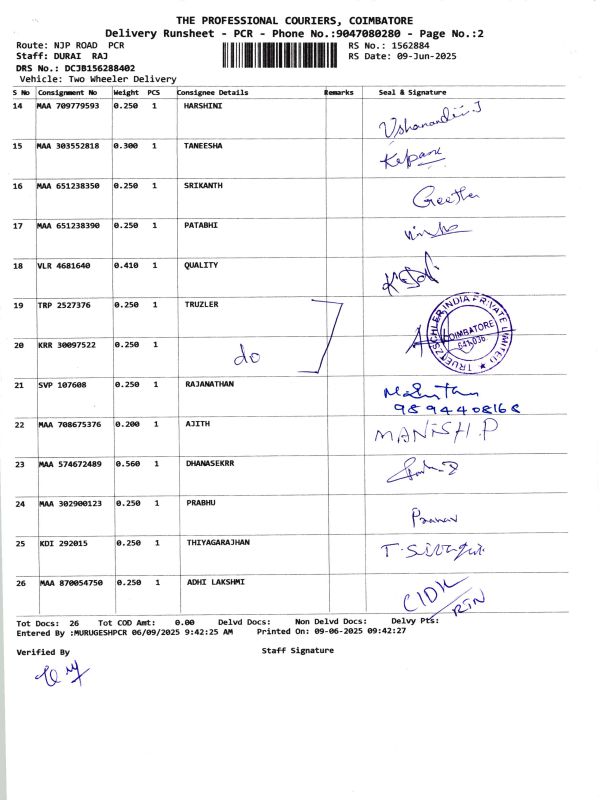 THE PROFESSIONAL COURIERS, COIMBATORE
Delivery Runsheet - PCR - Phone No.:9047080280 - Page No.:2
Route: NJP ROAD PCR RS No.: 1562884
Staff: DURAI RAJ RS Date: 09-Jun-2025
DRS No.: DCJB156288402
Vehicle: Two Wheeler Delivery
S No Consignment No Weight PCS Consignee Details Remarks Seal & Signature
14 MAA 709779593 0.250 1 HARSHINI
15 MAA 303552818 0.300 1 TANEESHA
16 MAA 651238350 0.250 1 SRIKANTH Geetha
17 MAA 651238390 0.250 1 PATABHI
18 VLR 4681640 0.410 1 QUALITY
19 TRP 2527376 0.250 1 TRUZLER
TRUETZSCHLER INDIA PRIVATE LIMITED COIMBATORE 641 036
20 KRR 30097522 0.250 1 do
21 SVP 107608 0.250 1 RAJANATHAN
9894408168
22 MAA 708675376 0.200 1 AJITH MANISH.P
23 MAA 574672489 0.560 1 DHANASEKRR
24 MAA 302900123 0.250 1 PRABHU Pranav
25 KDI 292015 0.250 1 THIYAGARAJHAN
26 MAA 870054750 0.250 1 ADHI LAKSHMI CIDK/RTN
Tot Docs: 26 Tot COD Amt: 0.00 Delvd Docs: Non Delvd Docs: Delvy Pts:
Entered By :MURUGESHPCR 06/09/2025 9:42:25 AM Printed On: 09-06-2025 09:42:27
Verified By Staff Signature